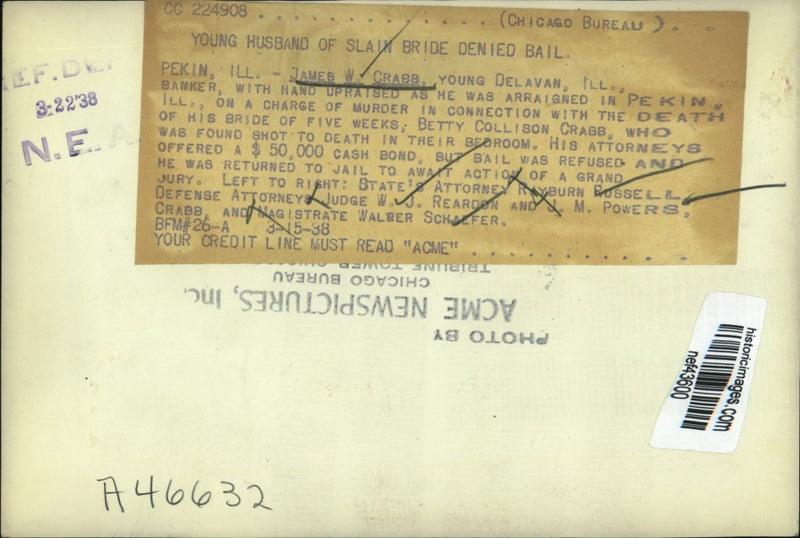 CC 224908 . . . . . . . . . . . . . . (CHICAGO BUREAU). . .
YOUNG HUSBAND OF SLAIN BRIDE DENIED BAIL.
PEKIN, ILL. - JAMES W. CRABB, YOUNG DELAVAN, ILL.,
BANKER, WITH HAND UPRAISED AS HE WAS ARRAIGNED IN PEKIN,
ILL., ON A CHARGE OF MURDER IN CONNECTION WITH THE DEATH
OF HIS BRIDE OF FIVE WEEKS, BETTY COLLISON CRABB, WHO
WAS FOUND SHOT TO DEATH IN THEIR BEDROOM. HIS ATTORNEYS
OFFERED A $ 50,000 CASH BOND, BUT BAIL WAS REFUSED AND
HE WAS RETURNED TO JAIL TO AWAIT ACTION OF A GRAND
JURY. LEFT TO RIGHT: STATE'S ATTORNEY RAYBURN RUSSELL,
DEFENSE ATTORNEYS JUDGE W. J. REARDON AND J. M. POWERS,
CRABB, AND MAGISTRATE WALBER SCHAEFER.
BFM#26-A 3-15-38
YOUR CREDIT LINE MUST READ "ACME" . . . . . . . . . . . .
EF. DE
3-22'38
N. E. A
PHOTO BY
ACME NEWSPICTURES, Inc.
CHICAGO BUREAU
TRIBUNE TOWER, CHICAGO
historicimages.com
nef43600
A46632